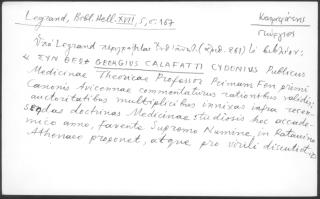 Legrand, Bibl. Hell. XVII, 5, σ. 167
Καλαφάτης
Γεώργιος
Ὑπὸ Legrand περιγράφεται (ἀρ. 861) τὸ βιβλίον:
« ΣΥΝ ΘΕΩ GEORGIUS CALAFATTI CYDONIUS Publicus
Medicinae Theoricae Professor Primam Fen primi
Canonis Avicennae commentaturus rationibus validis,
auctoritatibus multiplicibus innixas infra recen-
sendas doctrinas Medicinae studiosis hoc accade-
mico anno, favente Supremo Numine, in Patavino
Athenaeo proponet, atque pro virili discutiet »